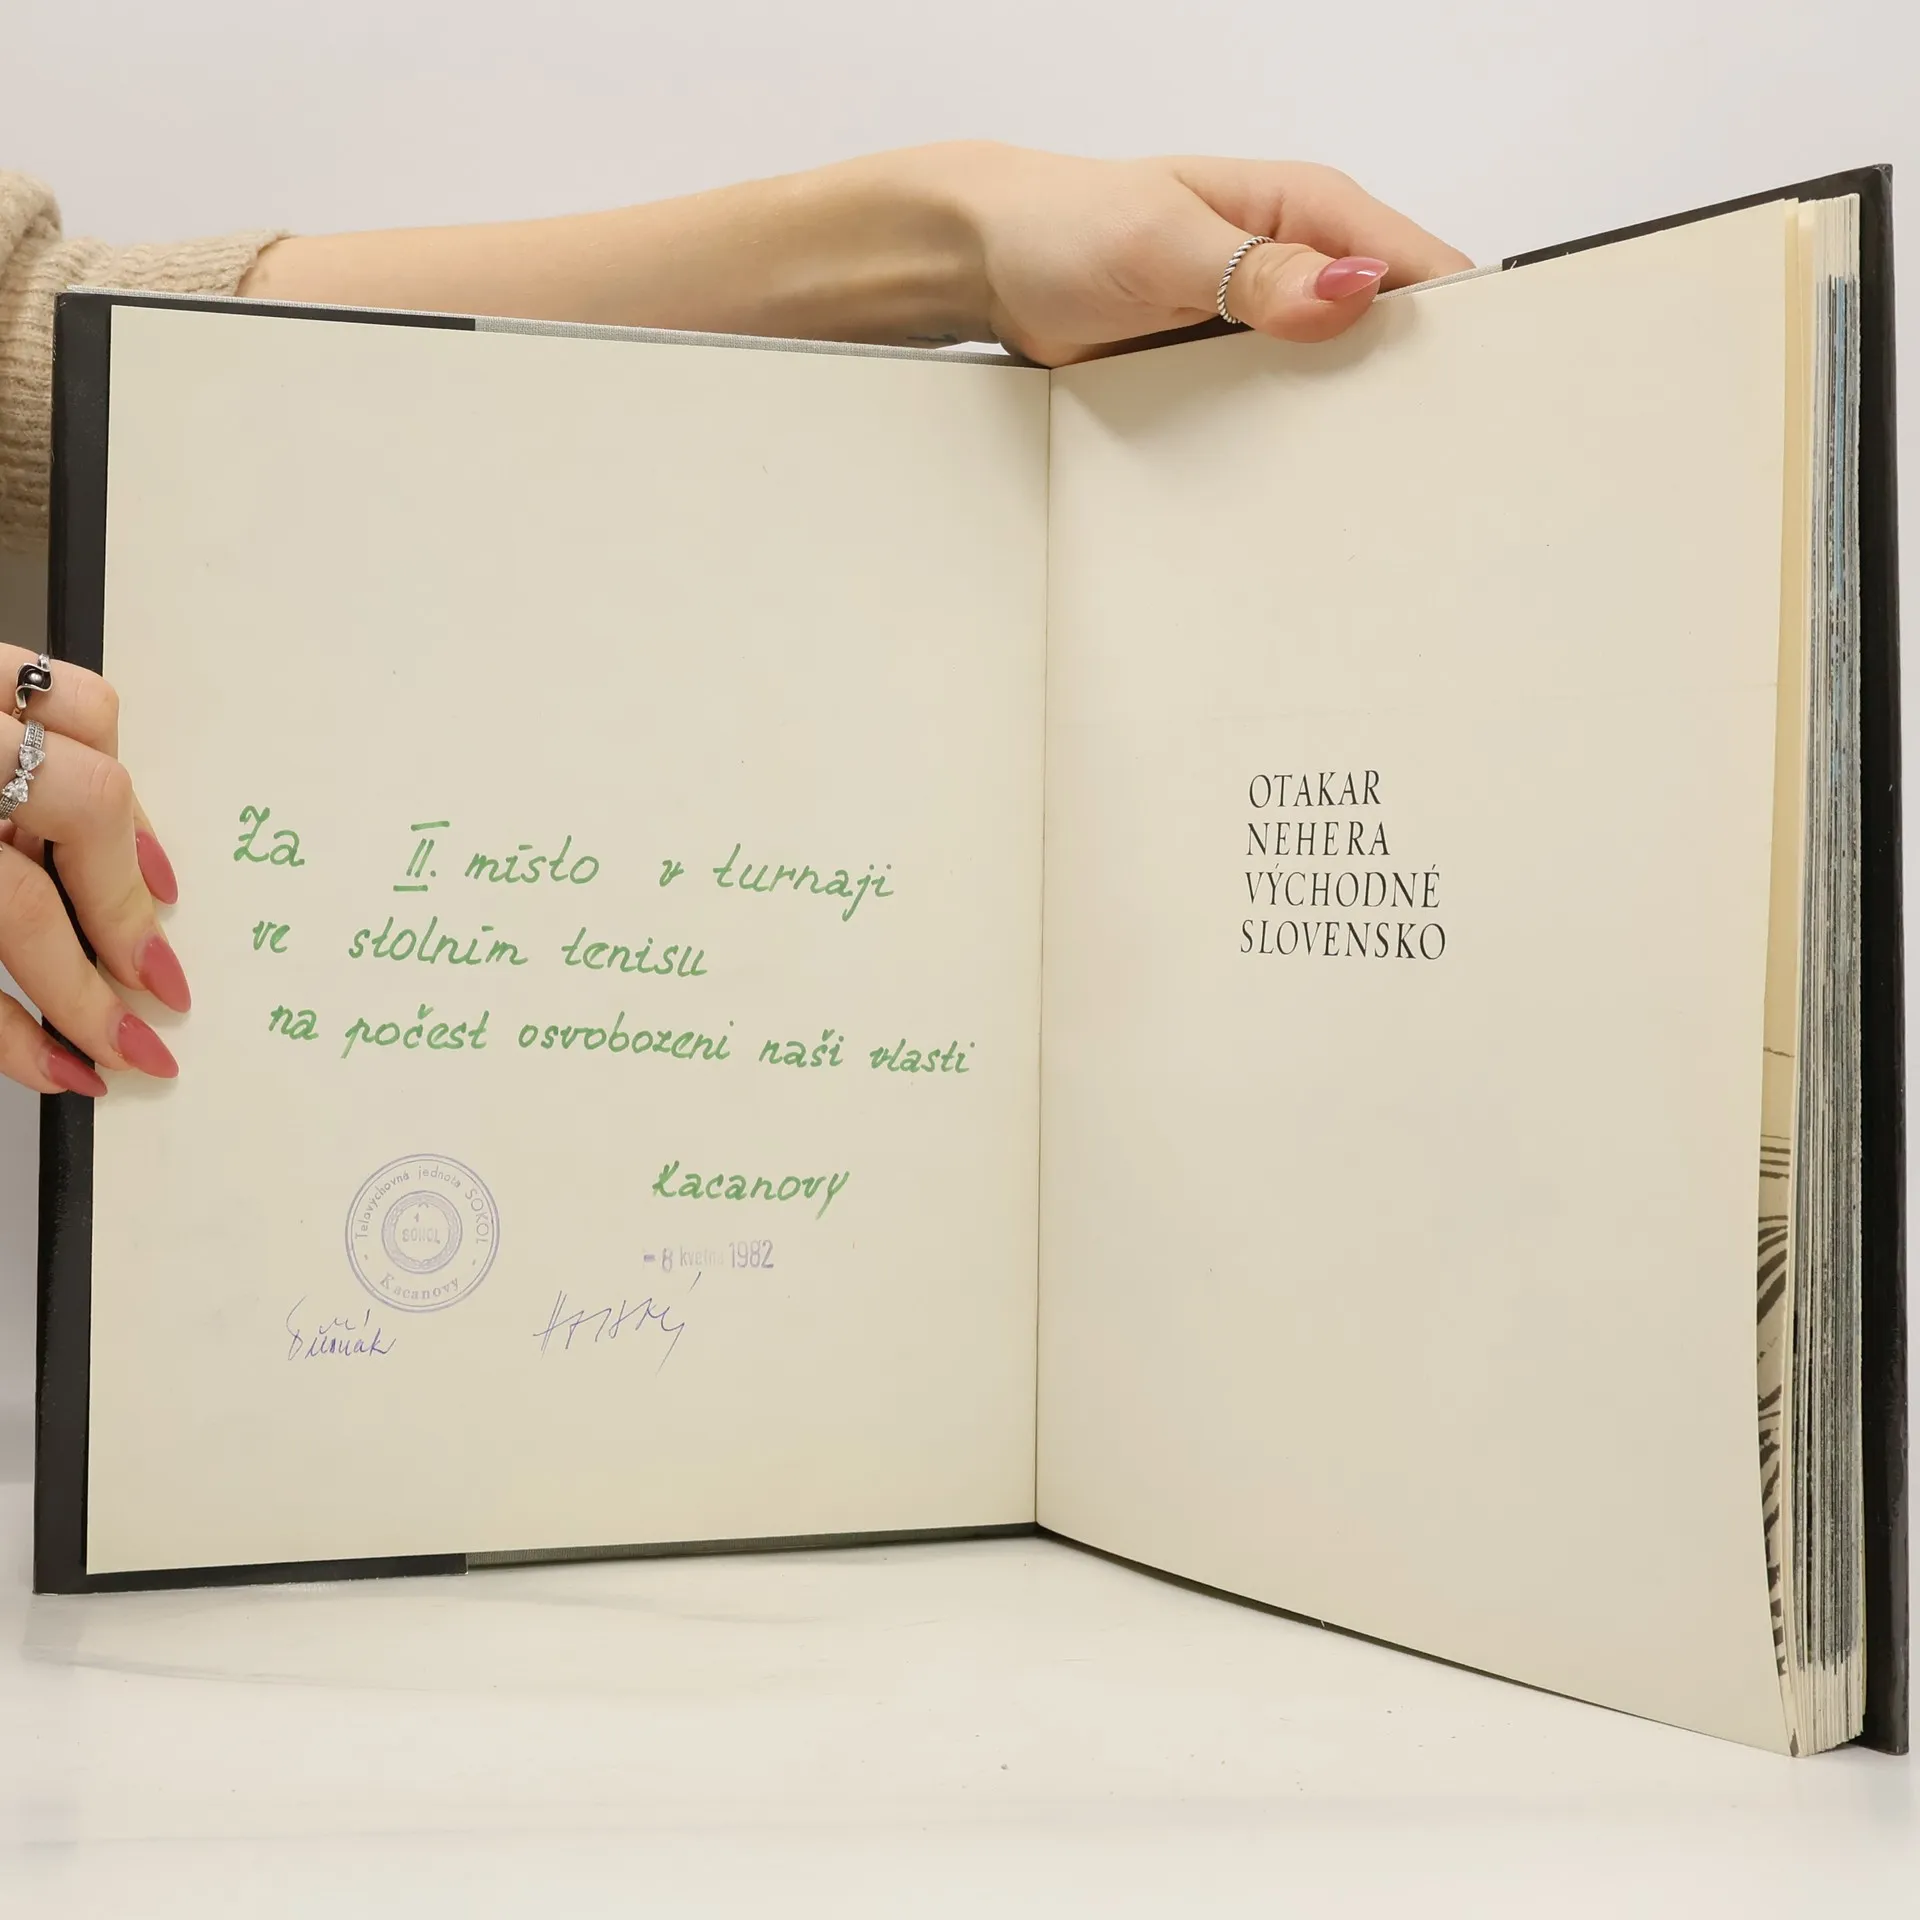 Za II. místo v turnaji
ve stolním tenisu
na počest osvobození naší vlasti
Kacanovy
Tělovýchovná jednota SOKOL
SOKOL
Kacanovy
- 8 května 1982
OTAKAR
NEHERA
VÝCHODNÉ
SLOVENSKO